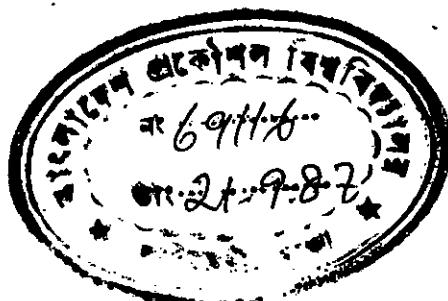 বাংলাদেশ প্রকৌশল বিশ্ববিদ্যালয়
নং 69116
তাং 21.9.87